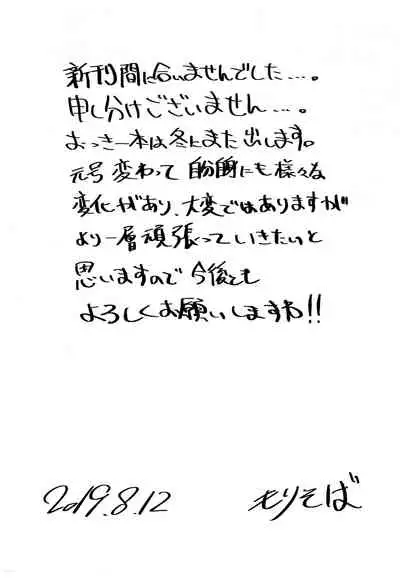 新刊間に合いませんでした…。
申し分けございません…。
おっきー本は冬にまた出します。
元号変わって自分的にも様々な
変化があり、大変ではありますが
より一層頑張っていきたいと
思いますので今後とも
よろしくお願いしますわ!!
2019.8.12 もりそば